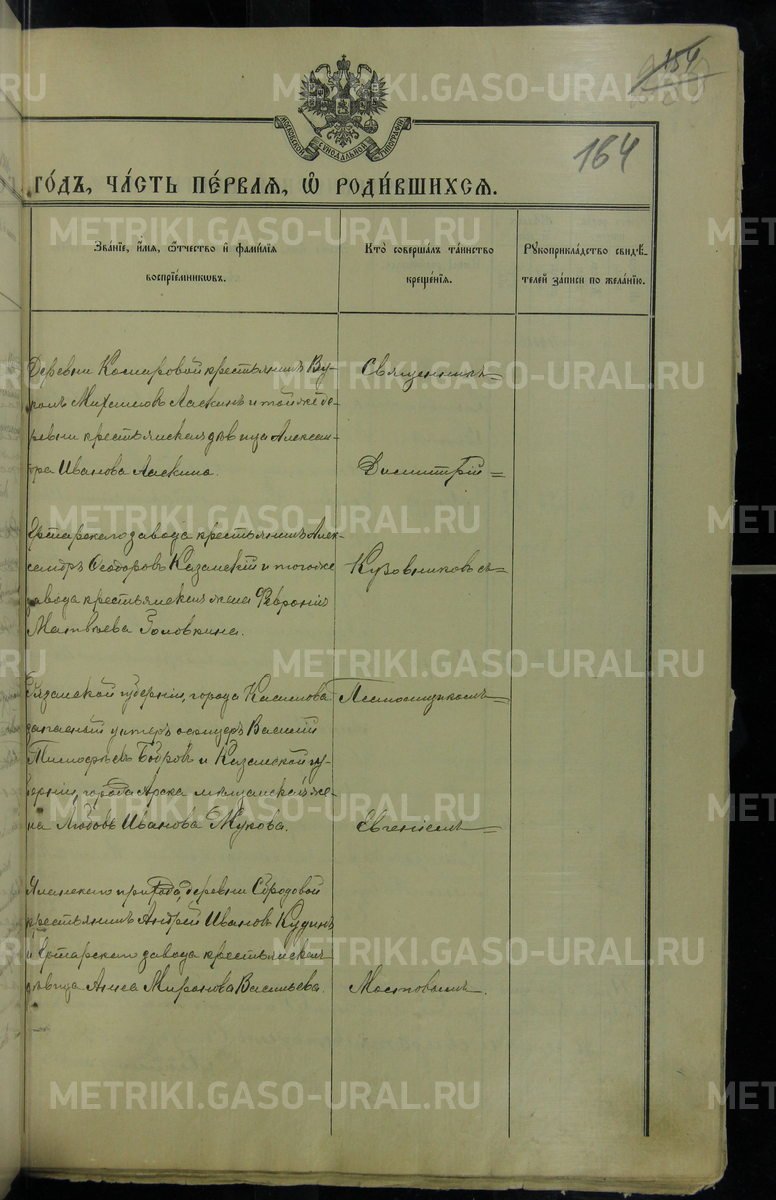 154
164
МОСКОВСКОЙ СѴНОДАЛЬНОЙ ТИПОГРАФІИ
ГО́ДЪ, ЧА́СТЬ ПЕ́РВАЯ, Ѡ҆ РОДИ́ВШИХСЯ.
Зва́нїе, и҆́мя, ѻ҆́тчество и҆ фами́лїя
воспрїе́мникωвъ.
Кто̀ соверша́лъ та́инство
креще́нїя.
Рꙋкоприкла́дство свидѣ́-
телей за́писи по жела́нїю.
Деревни Комаровой крестьянинъ Ву-
колъ Михаиловъ Ласкинъ и той же де-
ревни крестьянская дѣвица Алексан-
дра Иванова Ласкина.
Священникъ
Димитрій
Ертарскаго завода крестьянинъ Алек-
сандръ Ѳеодоровъ Казанскій и того же
завода крестьянская жена Феѵронія
Матвѣева Головкина.
Кузовниковъ съ
Рязанской губерніи, города Касимова
запасный унтеръ офицеръ Василій
Тимофѣевъ Бобковъ и Казанской гу-
берніи, города Арска мѣщанская же-
на Любовь Иванова Жукова.
Псаломщикомъ
Евгеніемъ
Яланскаго прихода, деревни Сбродовой
крестьянинъ Андрей Ивановъ Кудинъ
и Ертарскаго завода крестьянская
дѣвица Анна Миронова Васильева.
Мостовымъ.
METRIKI.GASO-URAL.RU